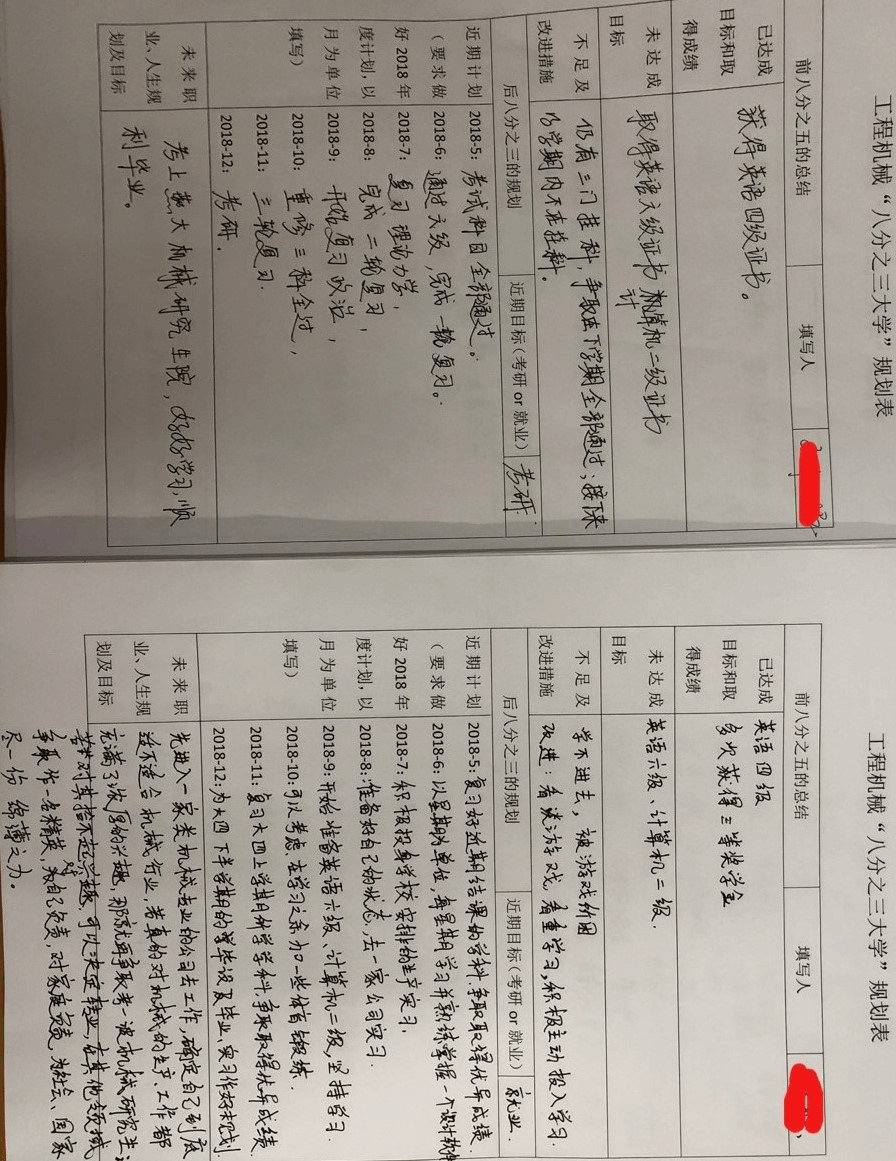 工程机械“八分之三大学”规划表
前八分之五的总结 填写人
已达成目标和取得成绩 获得英语四级证书。
未达成目标 取得英语六级证书 计算机二级证书
不足及改进措施 仍有三门挂科,争取在下学期全部通过;接下来
的学期内不在挂科。
后八分之三的规划 近期目标(考研 or 就业) 考研.
近期计划(要求做好 2018 年度计划,以月为单位填写)
2018-5: 考试科目全部通过。
2018-6: 通过六级,完成一轮复习。
2018-7: 复习理论力学,
2018-8: 完成二轮复习,
2018-9: 开始复习政治,
2018-10: 重修三科全过,
2018-11: 三轮复习.
2018-12: 考研.
未来职业、人生规划及目标 考上燕大机械研究生院,好好学习,顺
利毕业。
工程机械“八分之三大学”规划表
前八分之五的总结 填写人
已达成目标和取得成绩 英语四级
多次获得三等奖学金
未达成目标 英语六级、计算机二级.
不足及改进措施 学不进去,被游戏所困
改进:看淡游戏,看重学习,积极主动投入学习.
后八分之三的规划 近期目标(考研 or 就业) 就业.
近期计划(要求做好 2018 年度计划,以月为单位填写)
2018-5: 复习好近期结课的学科.争取取得优异成绩.
2018-6: 以星期为单位,每星期学习并熟练掌握一个设计软件
2018-7: 积极投身学校安排的生产实习.
2018-8: 准备好自己的状态,去一家公司实习.
2018-9: 开始准备英语六级、计算机二级,坚持学习.
2018-10: 可以考虑.在学习之余加一些体育锻炼.
2018-11: 复习大四上学期所学学科.争取取得优异成绩.
2018-12: 为大四下半学期的毕设及毕业、实习作好规划.
未来职业、人生规划及目标 先进入一家类机械专业的公司去工作,确定自己到底
适不适合机械行业,若真的对机械的生产、工作都
充满了浓厚的兴趣,那就再争取考一波机械研究生;
若对其提不起兴趣.可以决定转业,在其他领域
争取作一名精英,对自己负责,对家庭负责,为社会、国家
尽一份绵薄之力。